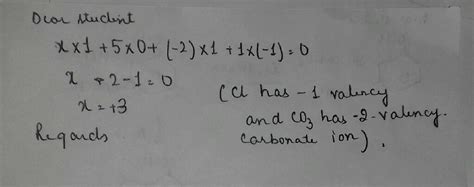 Dear student
x×1 + 5×0 + (-2)×1 + 1×(-1) = 0
x - 2 - 1 = 0
x = +3
(Cl has -1 valency
and CO3 has -2 valency.
carbonate ion).
Regards